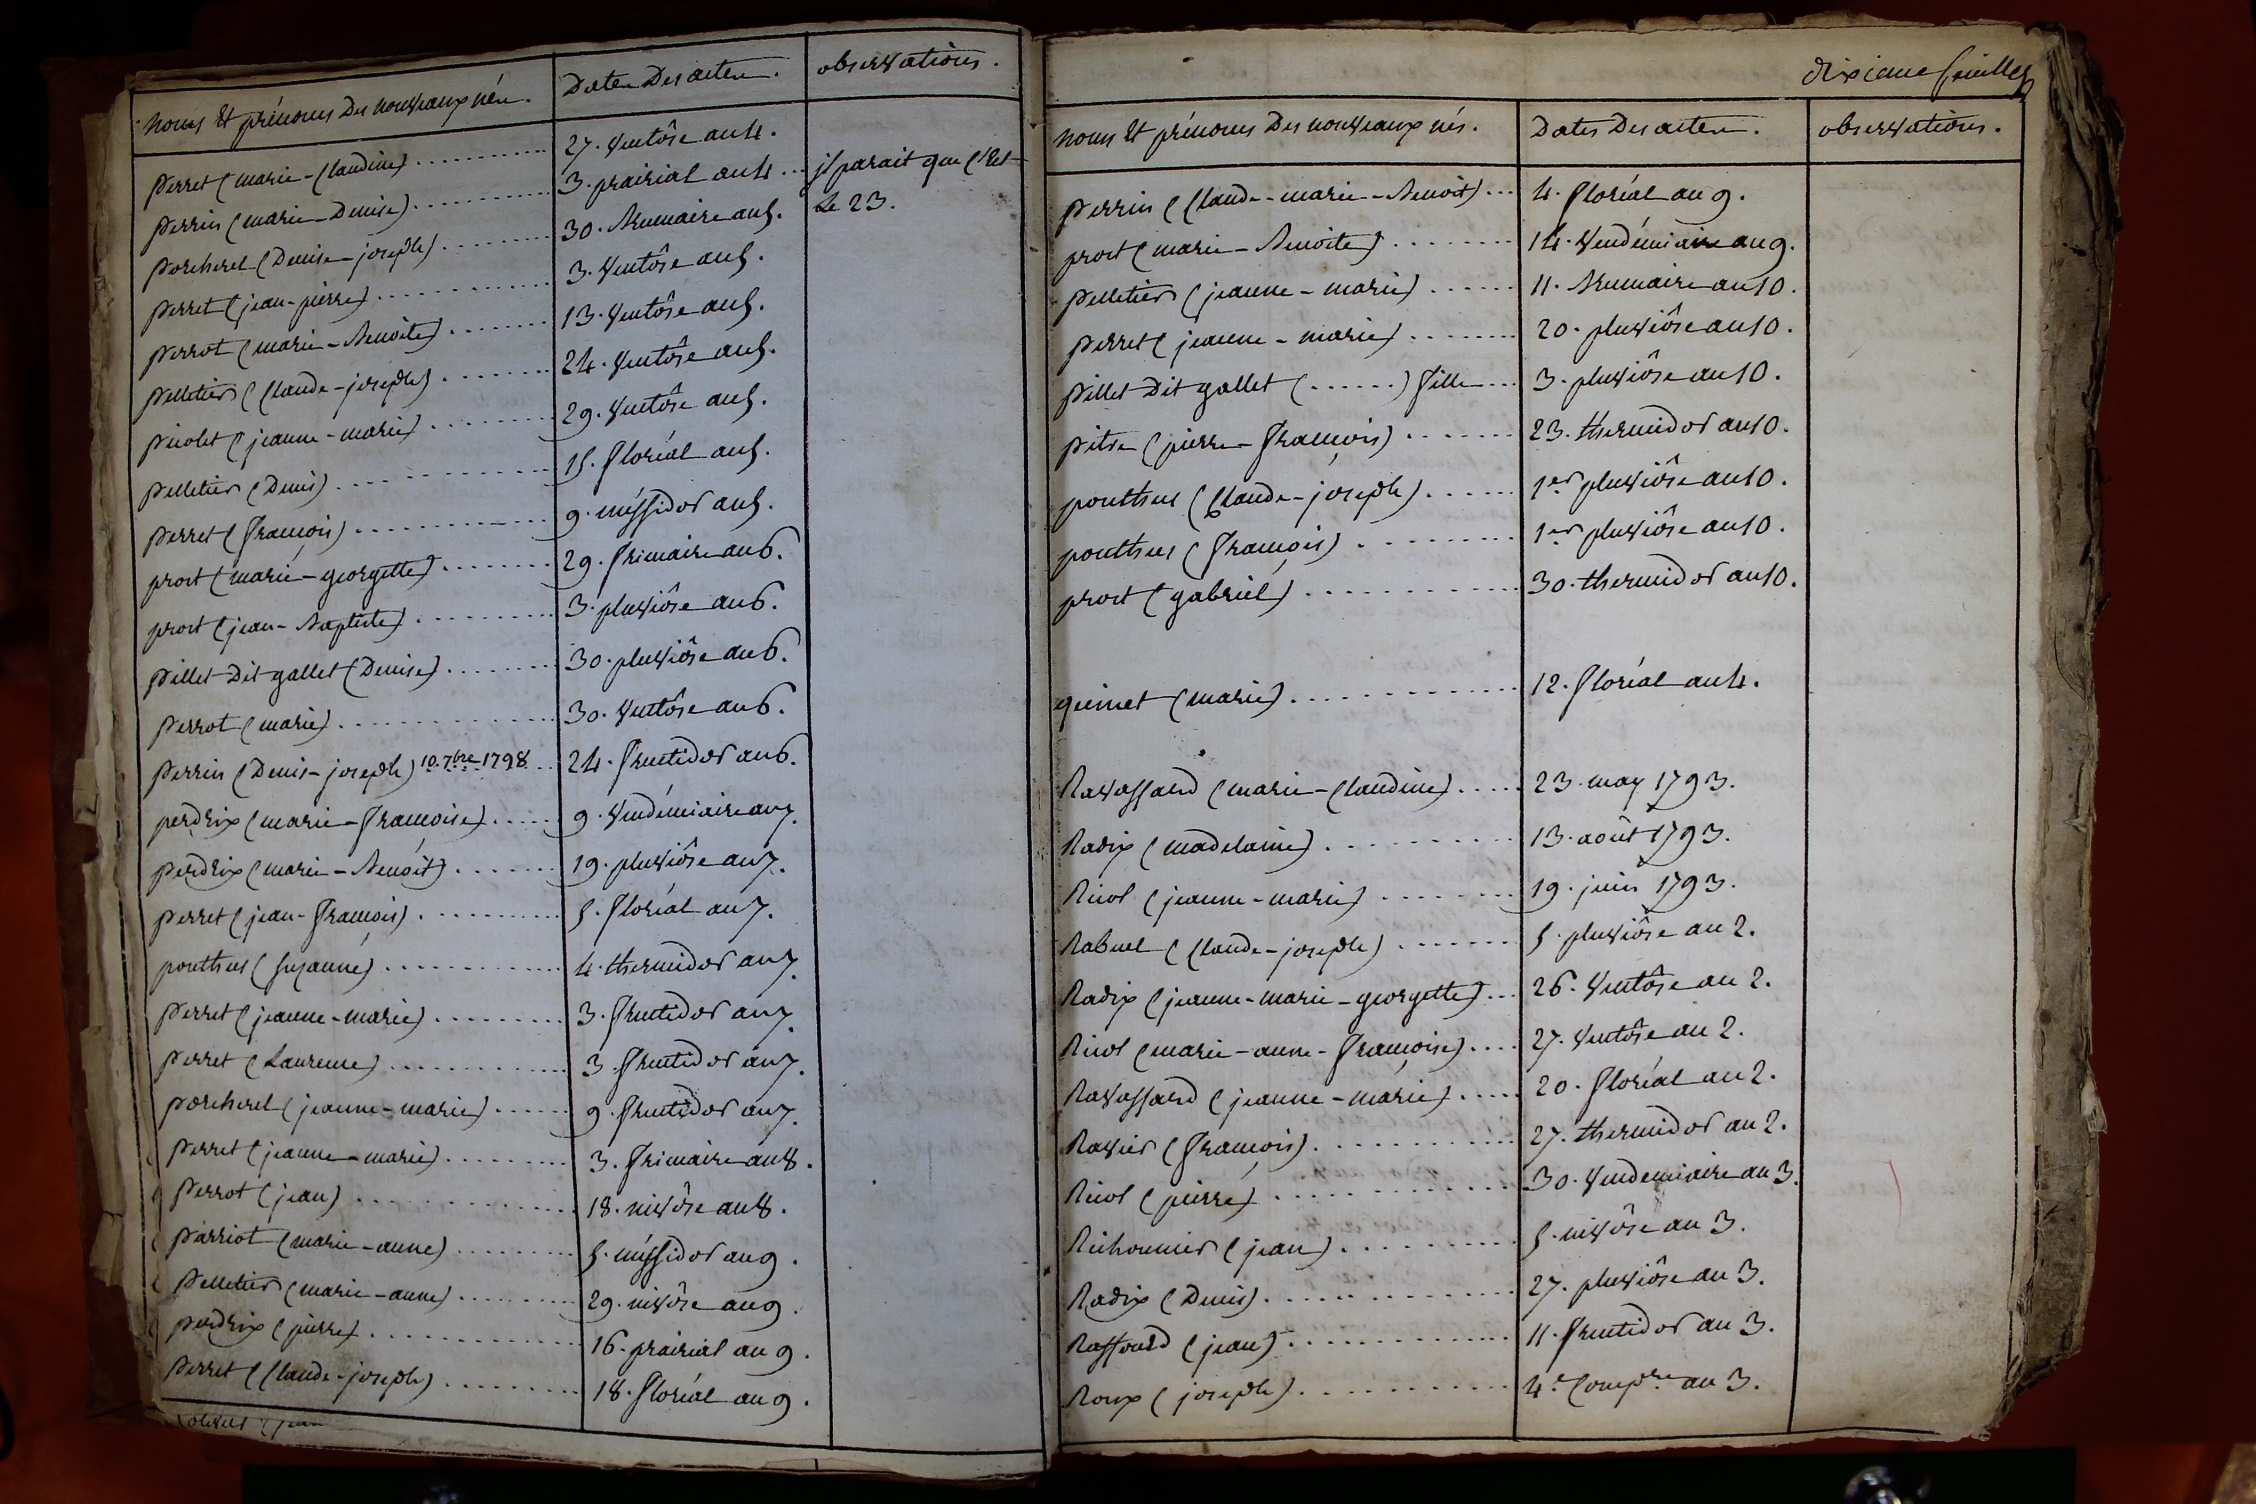 noms Et prénoms Des nouveaux nés. Dates Des actes. observations.
perret (marie-Claudine) 27. Ventôse an 4.
perrin (marie-Denise) 3. prairial an 4 ... jl parait que C'est
porcherel (Denise-joseph) 30. Brumaire an 5. Le 23.
perret (jean-pierre) 3. Ventôse an 5.
perrot (marie-Benoite) 13. Ventôse an 5.
pelletier (Claude-joseph) 24. Ventôse an 5.
picolet (jeanne-marie) 29. Ventôse an 5.
pelletier (Denis) 15. floréal an 5.
perret (françois) 9. méssidor an 5.
prost (marie-georgette) 29. frimaire an 6.
prost (jean-Baptiste) 3. pluviôse an 6.
pillet Dit gallet (Denise) 30. pluviôse an 6.
perrot (marie) 30. Ventôse an 6.
perrin (Denis-joseph) 10. 7bre 1798 24. fructidor an 6.
perdrix (marie-françoise) 9. Vendémiaire an 7.
perdrix (marie-Benoit) 19. pluviôse an 7.
perret (jean-françois) 5. floréal an 7.
pouthus (suzanne) 4. thermidor an 7.
perret (jeanne-marie) 3. fructidor an 7.
perret (Laurence) 3. fructidor an 7.
porcherel (jeanne-marie) 9. fructidor an 7.
perret (jeanne-marie) 3. frimaire an 8.
perrot (jean) 18. nivôse an 8.
parriot (marie-anne) 5. méssidor an 9.
pelletier (marie-anne) 29. nivôse an 9.
perdrix (pierre) 16. prairial an 9.
perret (Claude-joseph) 18. floréal an 9.
dixieme feuillet
noms Et prénoms Des nouveaux nés. Dates Des actes. observations.
perrin (Claude-marie-Benoit) 4. floréal an 9.
prost (marie-Benoite) 14. Vendémiaire an 9.
pelletier (jeanne-marie) 11. Brumaire an 10.
perret (jeanne-marie) 20. pluviôse an 10.
pillet Dit gallet (......) fille 3. pluviôse an 10.
pitre (pierre-françois) 23. thermidor an 10.
pouthus (Claude-joseph) 1er pluviôse an 10.
pouthus (françois) 1er pluviôse an 10.
prost (gabriel) 30. thermidor an 10.
quinet (marie) 12. floréal an 4.
Ravassard (marie-Claudine) 23. may 1793.
Radix (madelaine) 13. août 1793.
Ricol (jeanne-marie) 19. juin 1793.
Rabuel (Claude-joseph) 5. pluviôse an 2.
Radix (jeanne-marie-georgette) 26. Ventôse an 2.
Ricol (marie-anne-françoise) 27. Ventôse an 2.
Ravassard (jeanne-marie) 20. floréal an 2.
Ravier (françois) 27. thermidor an 2.
Ricol (pierre) 30. Vendemiaire an 3.
Richonnier (jean) 5. nivôse an 3.
Radix (Denis) 27. pluviôse an 3.
Raffourd (jean) 11. fructidor an 3.
Roux (joseph) 4e. Compre. an 3.